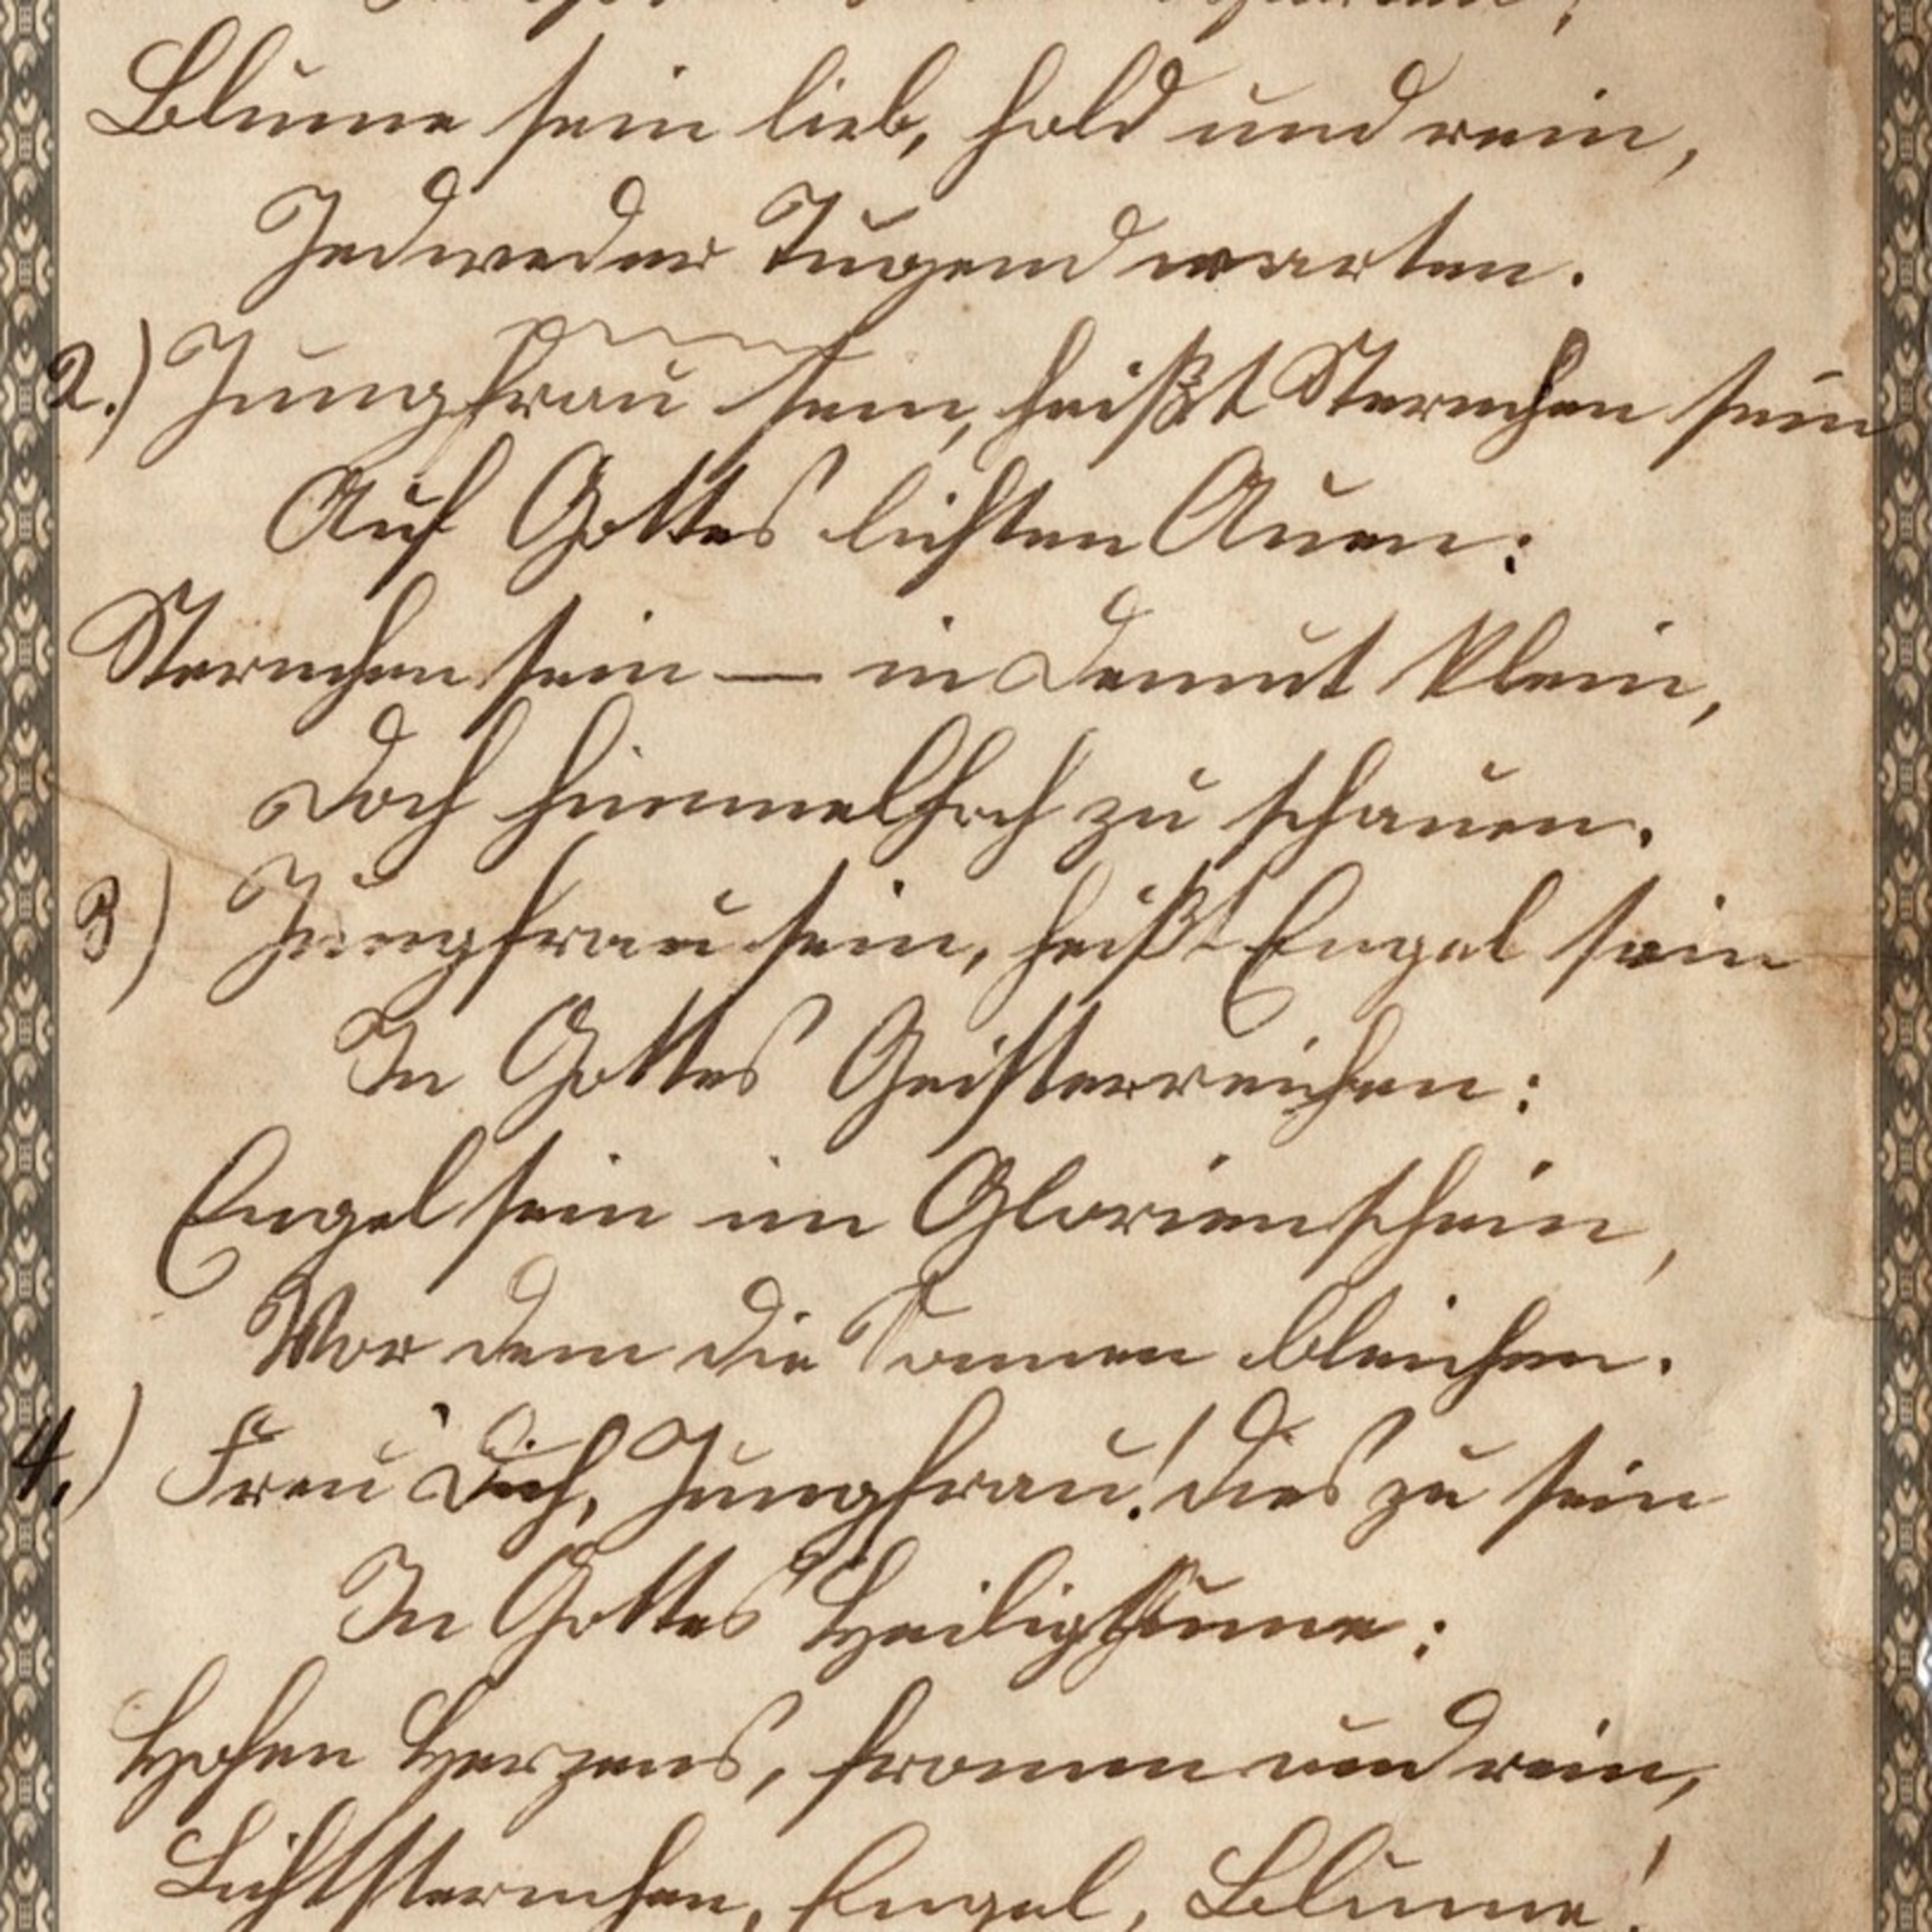 Blume sein lieb, hold und rein,
Jedweder Tugend warten.
2.) Jungfrau sein, heißt Sternchen sein
Auf Gottes lichten Auen:
Sternchen sein — in Demut klein,
Doch himmelhoch zu schauen.
3) Jungfrau sein, heißt Engel sein
In Gottes Geisterreichen:
Engel sein im Glorienschein,
Vor dem die Sonnen bleichen.
4.) Freu Dich, Jungfrau! dies zu sein
In Gottes Heiligthume:
Hohen Herzens, fromm und rein,
Lichtsternchen, Engel, Blume!